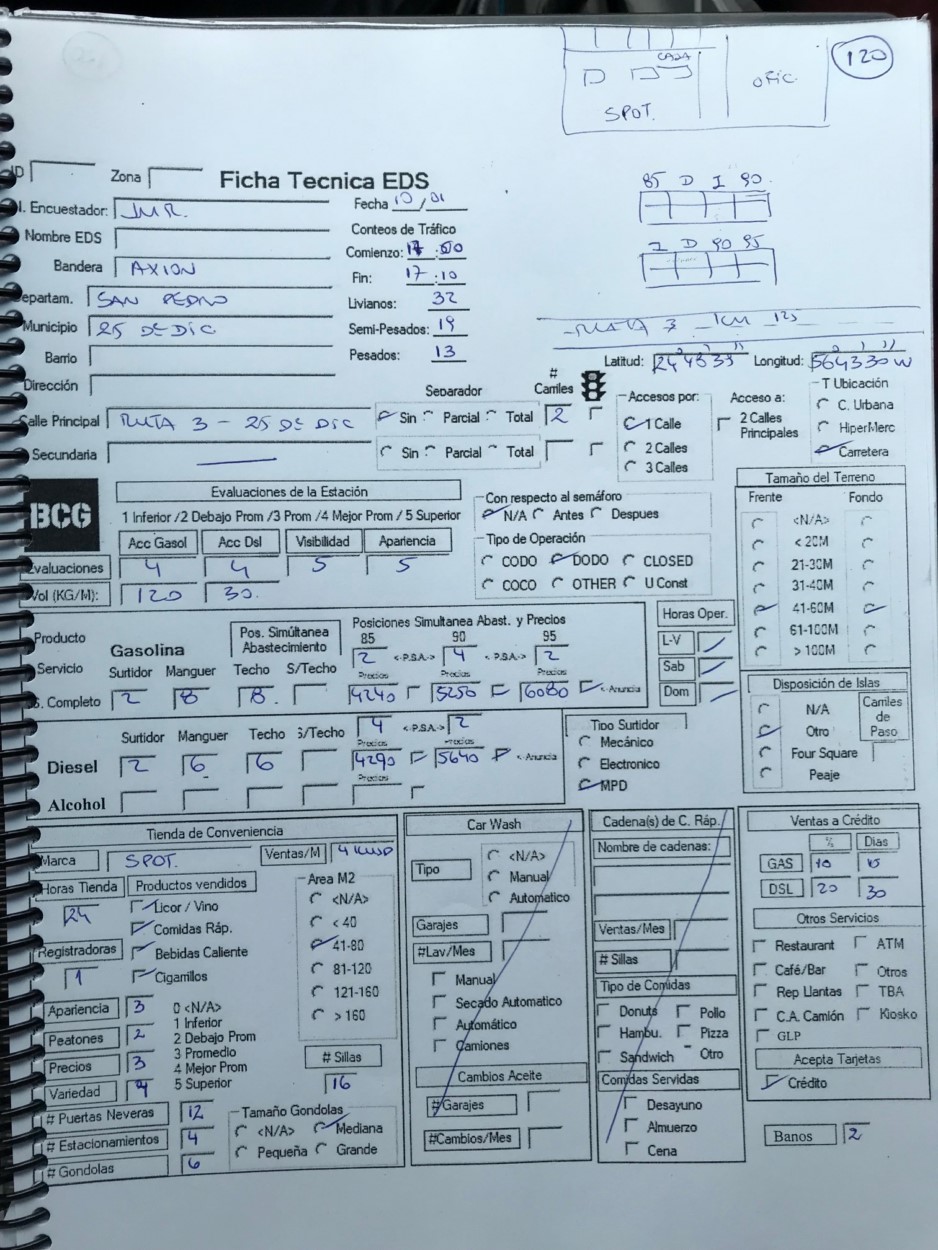 120
CAJA
OFIC.
SPOT.
ID Zona
Ficha Tecnica EDS
Fecha 10/01
85 D I 90
N. Encuestador: JMR.
Nombre EDS
Conteos de Tráfico
Comienzo: 17:00
I D 90 95
Bandera AXION
Fin: 17:10
Departam. SAN PEDRO
Livianos: 32
Municipio 25 DE DIC
Semi-Pesados: 19
RUTA 3 KM 125
Barrio
Pesados: 13
Latitud: Longitud:
Dirección
# Carriles
T Ubicación
Separador
Accesos por:
Acceso a:
C. Urbana
Calle Principal RUTA 3 - 25 DE DIC
Sin Parcial Total 2
1 Calle
2 Calles Principales
HiperMerc
2 Calles
Carretera
Secundaria
Sin Parcial Total
3 Calles
BCG
Evaluaciones de la Estación
Con respecto al semáforo
Tamaño del Terreno
1 Inferior /2 Debajo Prom /3 Prom /4 Mejor Prom / 5 Superior
N/A Antes Despues
Frente Fondo
Acc Gasol Acc Dsl Visibilidad Apariencia
Tipo de Operación
<N/A>
Evaluaciones 4 4 5 5
CODO DODO CLOSED
< 20M
Vol (KG/M): 120 30.
COCO OTHER U Const
21-30M
31-40M
41-60M
61-100M
> 100M
Producto
Servicio
Gasolina
Pos. Simúltanea Abastecimiento
Posiciones Simultanea Abast. y Precios
Horas Oper.
85 90 95
2 <-P.S.A.-> 4 <-P.S.A.-> 2
L-V
Surtidor Manguer Techo S/Techo
Precios Precios Precios
Sab
S. Completo 2 8 8. 4240 5250 6080 <-Anuncia
Dom
Disposición de Islas
N/A
Otro
Four Square
Peaje
Carriles de Paso
Surtidor Manguer Techo S/Techo
4 <-P.S.A.-> 2
Precios Precios
Diesel 2 6 6 4290 5640 <-Anuncia
Precios
Alcohol
Tipo Surtidor
Mecánico
Electronico
MPD
Tienda de Conveniencia
Marca SPOT.
Ventas/M
Horas Tienda 24
Productos vendidos
Licor / Vino
Comidas Ráp.
Bebidas Caliente
Cigarrillos
Registradoras 1
Area M2
<N/A>
< 40
41-80
81-120
121-160
> 160
Apariencia 3
Peatones 2
Precios 3
Variedad 4
0 <N/A>
1 Inferior
2 Debajo Prom
3 Promedio
4 Mejor Prom
5 Superior
# Sillas
16
# Puertas Neveras 12
# Estacionamientos 4
# Gondolas 6
Tamaño Gondolas
<N/A> Mediana
Pequeña Grande
Car Wash
Tipo
<N/A>
Manual
Automatico
Garajes
#Lav/Mes
Manual
Secado Automatico
Automático
Camiones
Cambios Aceite
#Garajes
#Cambios/Mes
Cadena(s) de C. Ráp.
Nombre de cadenas:
Ventas/Mes
# Sillas
Tipo de Comidas
Donuts Pollo
Hambu. Pizza
Sandwich Otro
Comidas Servidas
Desayuno
Almuerzo
Cena
Ventas a Crédito
% Dias
GAS 10 15
DSL 20 30
Otros Servicios
Restaurant ATM
Café/Bar Otros
Rep Llantas TBA
C.A. Camión Kiosko
GLP
Acepta Tarjetas
Crédito
Banos 2